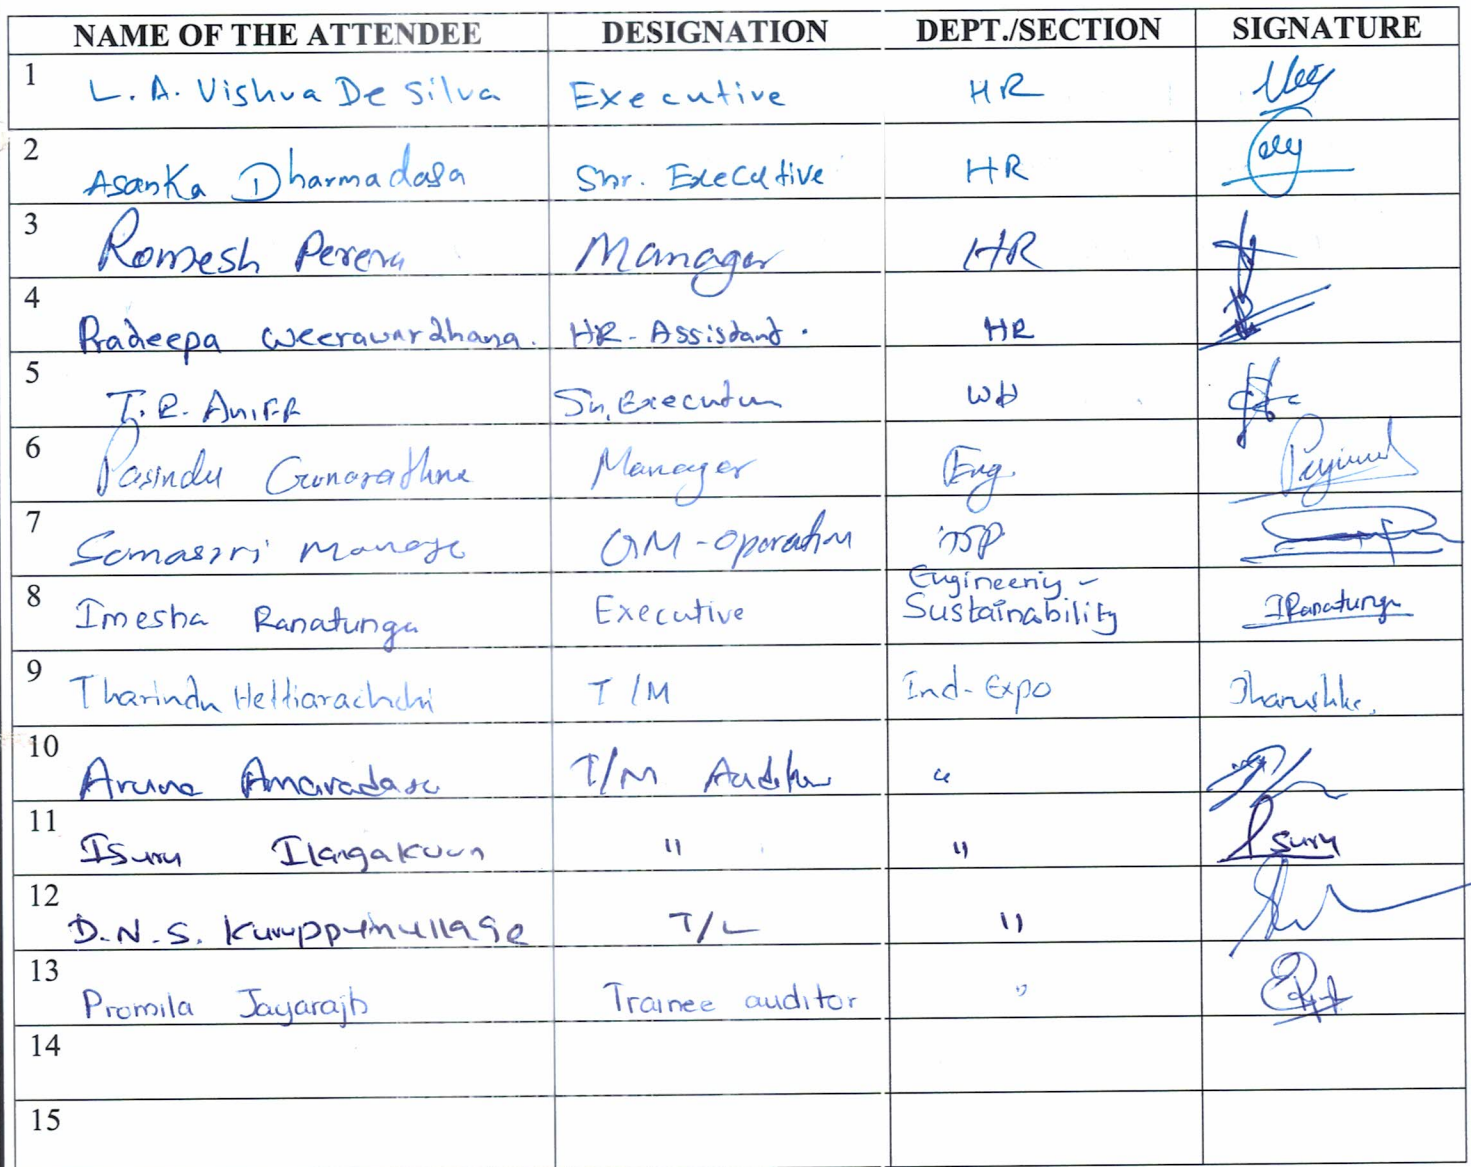 NAME OF THE ATTENDEE DESIGNATION DEPT./SECTION SIGNATURE
1 L. A. Vishva De Silva Executive HR
2 Asanka Dharmadasa Snr. Executive HR
3 Romesh Perera Manager HR
4 Pradeepa Weerawardhana. HR - Assistant. HR
5 T. R. Aniff Sn. Executive
6 Pasindu Gunarathne Manager Eng.
7 GM - Operation
Engineering -
8 Imesha Ranatunga Executive Sustainability IRanatunga
9 Tharindu Hettiarachchi T/M Ind-Expo
10 Aruna Amaradasa T/M Auditor "
11 Isuru Ilangakoon " " Isuru
12 D.N.S. Kuruppumullage T/L "
13 Promila Jayarajh Trainee auditor "
14
15